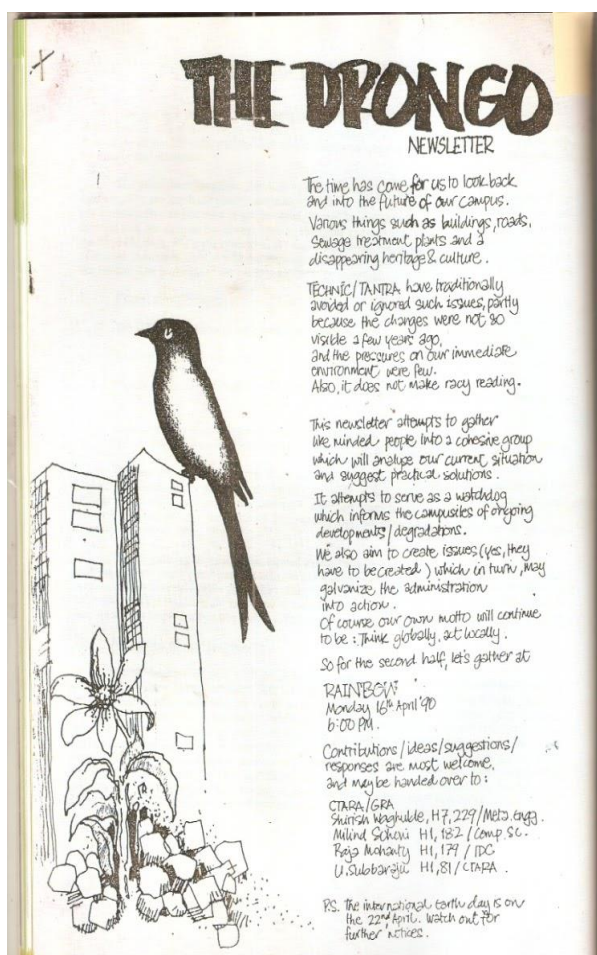 THE DRONGO
NEWSLETTER
The time has come for us to look back
and into the future of our campus.
Various things such as buildings, roads,
Sewage treatment plants and a
disappearing heritage & culture.
TECHNIC/TANTRA have traditionally
avoided or ignored such issues, partly
because the changes were not so
visible a few years ago,
and the pressures on our immediate
environment were few.
Also, it does not make racy reading.
This newsletter attempts to gather
like minded people into a cohesive group
which will analyse our current situation
and suggest practical solutions.
It attempts to serve as a watchdog
which informs the campusites of ongoing
developments/degradations.
We also aim to create issues (yes, they
have to be created) which in turn, may
galvanize the administration
into action.
Of course our own motto will continue
to be: Think globally, act locally.
So for the second half, let's gather at
RAINBOW
Monday 16th April '90
6:00 PM.
Contributions/ideas/suggestions/
responses are most welcome,
and may be handed over to:
CTARA/GRA
Shirish Waghulde, H7, 229/Meta. Engg.
Milind Sohoni H1, 182/Comp. Sc.
Raja Mohanty H1, 179/IDC
U. Subbaraju H1, 81/CTARA.
P.S. The international Earth day is on
the 22nd April. Watch out for
further notices.